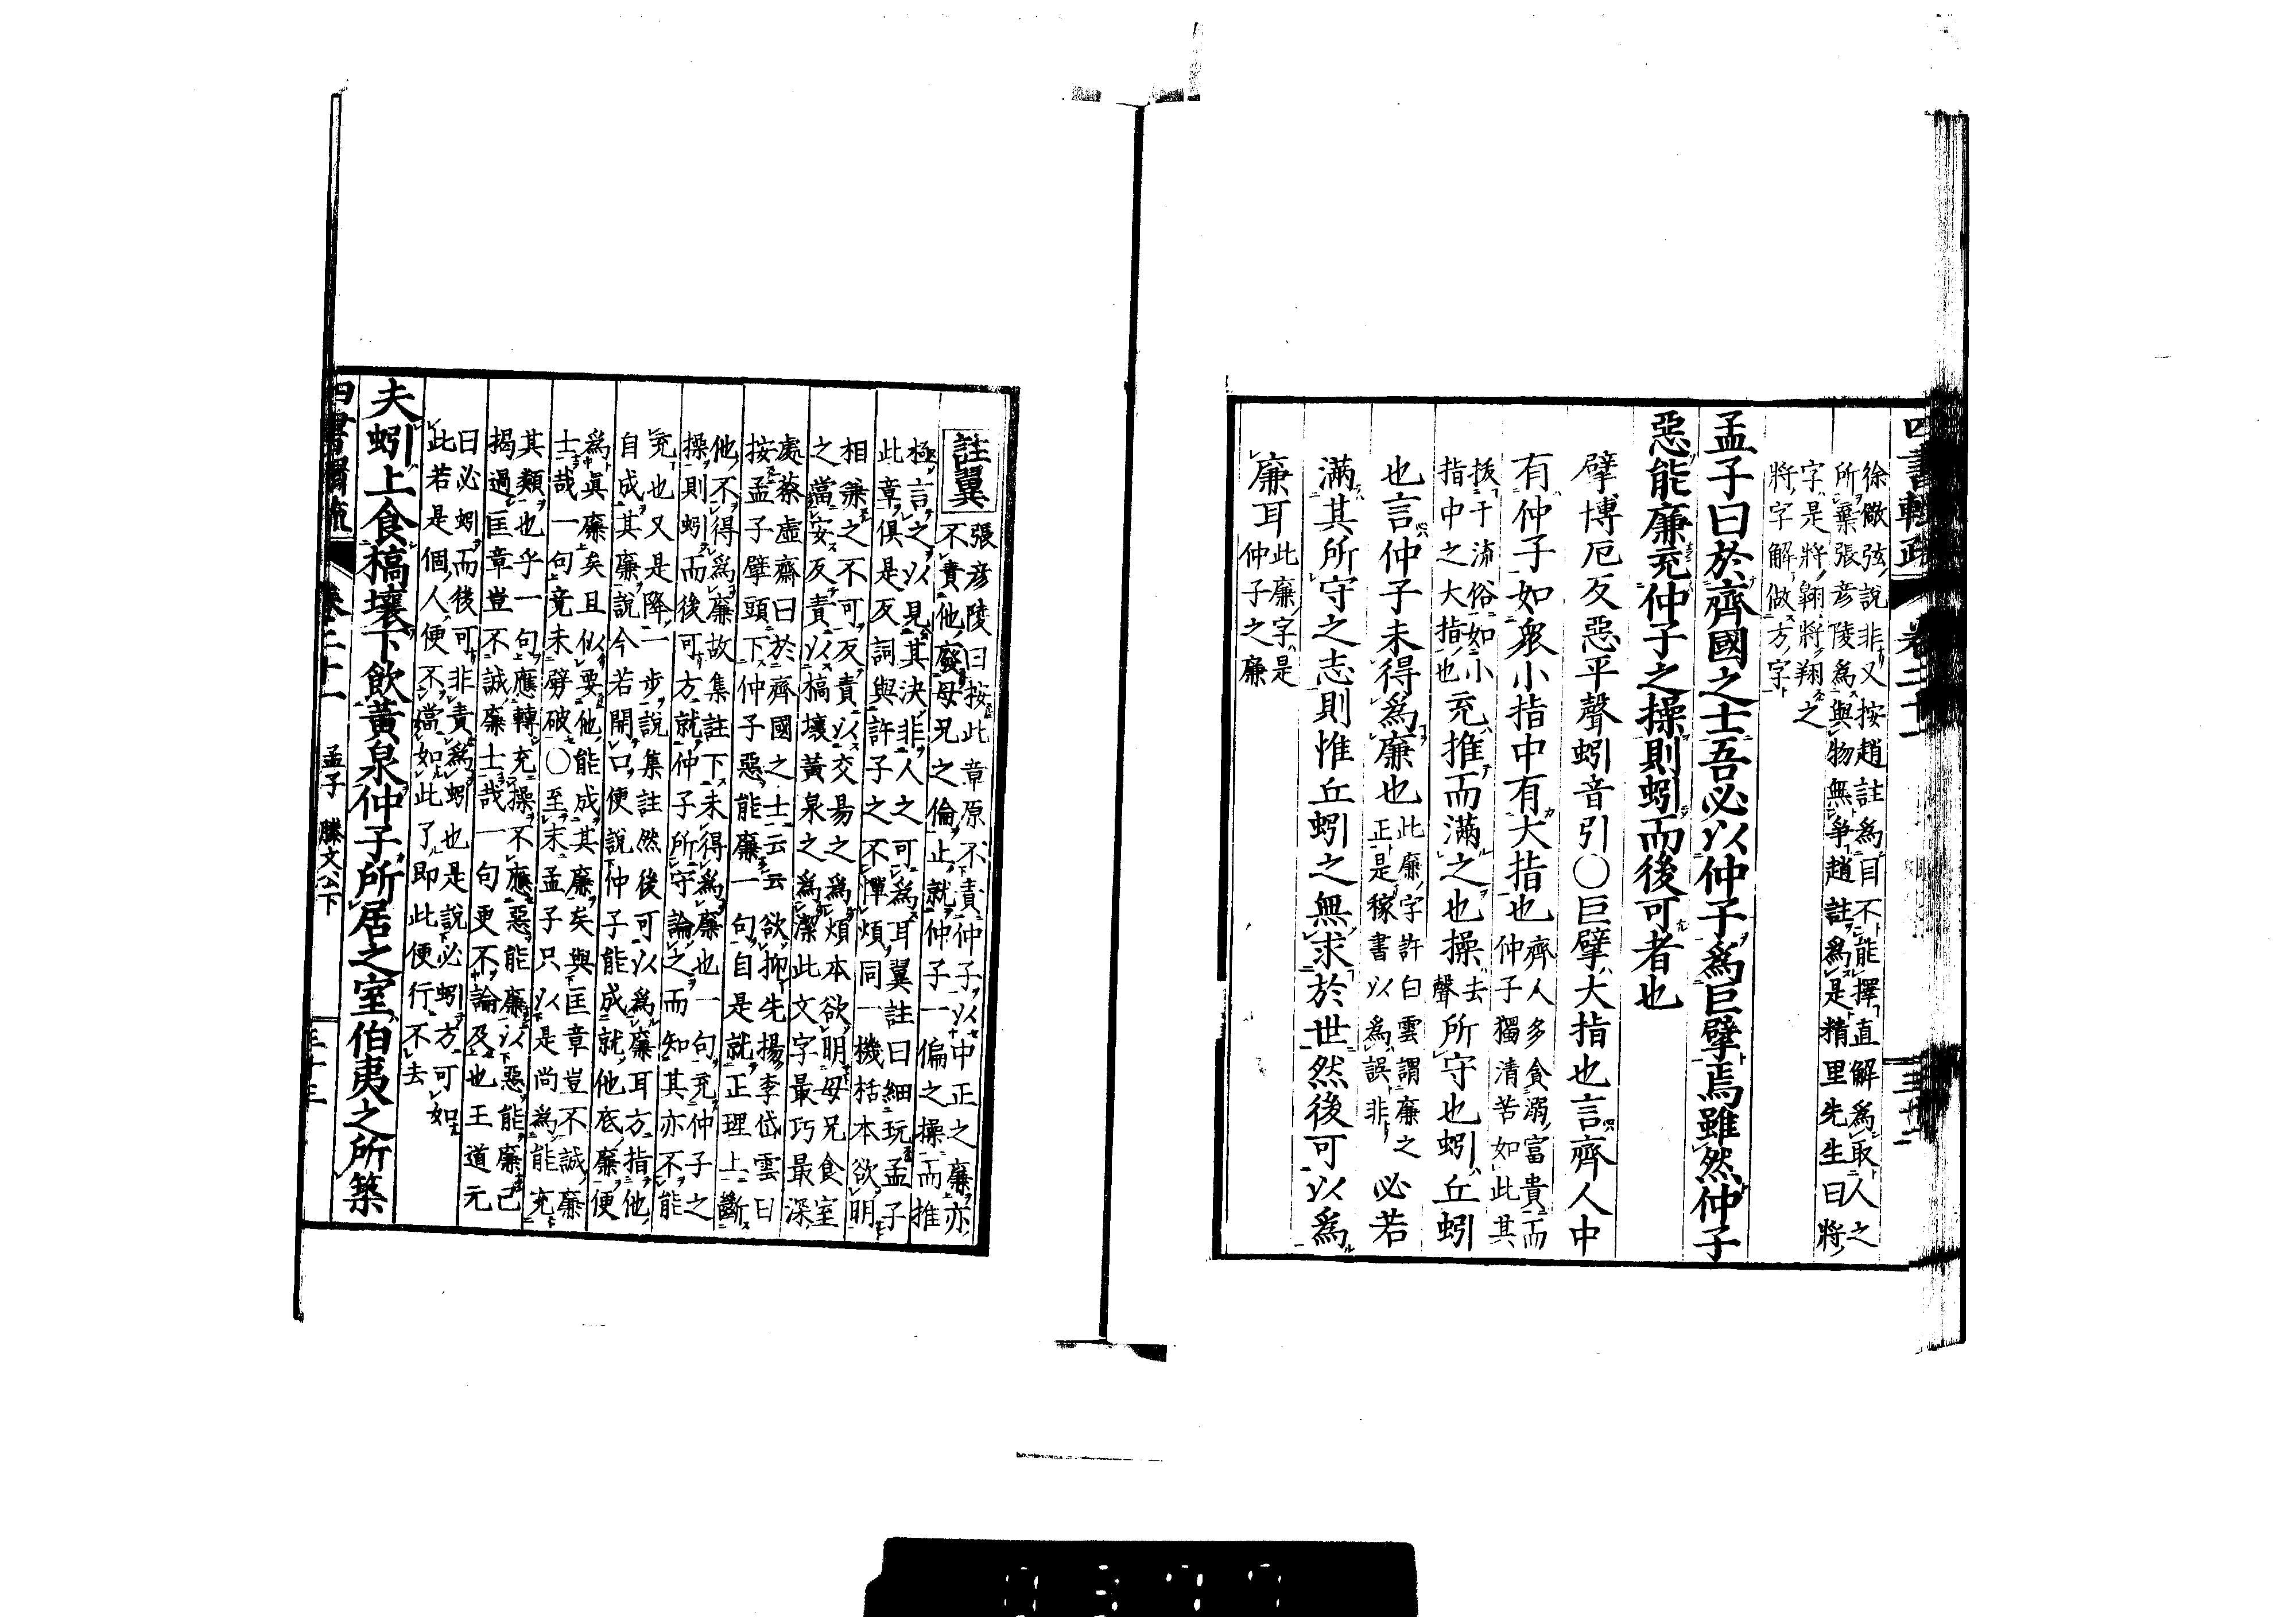 四書輯疏 卷二十一 三十二
徐儆弦說非又按趙註為目不能擇直解為取人之
所棄張彥陵為與物無爭趙註為是精里先生曰將
字是將翱將翔之
將字解做方字
孟子曰於齊國之士吾必以仲子為巨擘焉雖然仲子
惡能廉充仲子之操則蚓而後可者也
擘博厄反惡平聲蚓音引○巨擘大指也言齊人中
有仲子如衆小指中有大指也
齊人多貪溺富貴而
仲子獨清苦如此其
拔于流俗如小
指中之大指也
充推而滿之也操
去
聲
所守也蚓丘蚓
也言仲子未得為廉也
此廉字許白雲謂廉之
正是稼書以為誤非
必若
滿其所守之志則惟丘蚓之無求於世然後可以為
廉耳
此廉字是
仲子之廉
註翼
張彥陵曰按此章原不責仲子以中正之廉亦
不責他廢母兄之倫止就仲子一偏之操而推
極言之以見其決非人之可為耳翼註曰細玩孟子
此章俱是反詞與許子之不憚煩同一機栝本欲明
相兼之不可反責以交易之為煩本欲明母兄食室
之當安反責以槁壤黃泉之為潔此文字最巧最深
處蔡虛齋曰於齊國之士云云欲抑先揚李岱雲曰
按孟子擘頭下仲子惡能廉一句自是就正理上斷
他不得為廉故集註下未得為廉也一句充仲子之
操則蚓而後可方就仲子所守論之而知其亦不能
充也又是降一步說集註然後可以為廉耳方指他
自成其廉說今若開口便說仲子能成就他底廉便
為眞廉矣且似要他能成其廉矣與匡章豈不誠廉
士哉一句竟未劈破○至末孟子只以是尚為能充
其類也乎一句應轉充操不應惡能廉以惡能廉己
揭過匡章豈不誠廉士哉一句更不論及也王道元
曰必蚓而後可非責為蚓也是說必蚓方可如
此若是個人便不當如此了即此便行不去
夫蚓上食槁壤下飲黃泉仲子所居之室伯夷之所築
四書輯疏 卷二十一 孟子 滕文公下 三十三